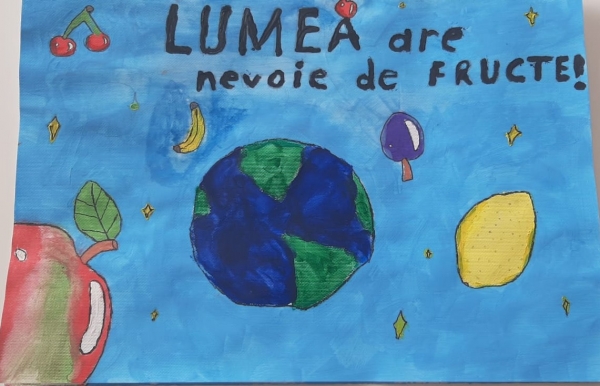 LUMEA are
nevoie de FRUCTE!